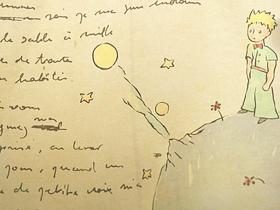 soir je me suis endormi
le sable à mille
de toute
habitée.
vous
ginez ma
prise, au lever
jour, quand un
de petite voix m'a